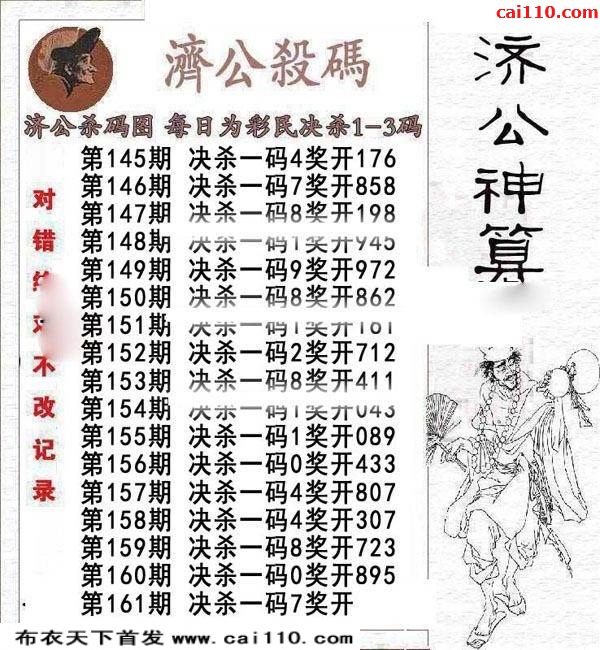 cai110.com
濟公殺碼
济公杀码图 每日为彩民决杀1-3码
第145期 决杀一码4奖开176
第146期 决杀一码7奖开858
第147期 决杀一码8奖开198
第148期 决杀一码1奖开945
第149期 决杀一码9奖开972
第150期 决杀一码8奖开862
第151期 决杀一码1奖开161
第152期 决杀一码2奖开712
第153期 决杀一码8奖开411
第154期 决杀一码1奖开043
第155期 决杀一码1奖开089
第156期 决杀一码0奖开433
第157期 决杀一码4奖开807
第158期 决杀一码4奖开307
第159期 决杀一码8奖开723
第160期 决杀一码0奖开895
第161期 决杀一码7奖开
对错 不改记录
济公神算
布衣天下首发 www.cai110.com